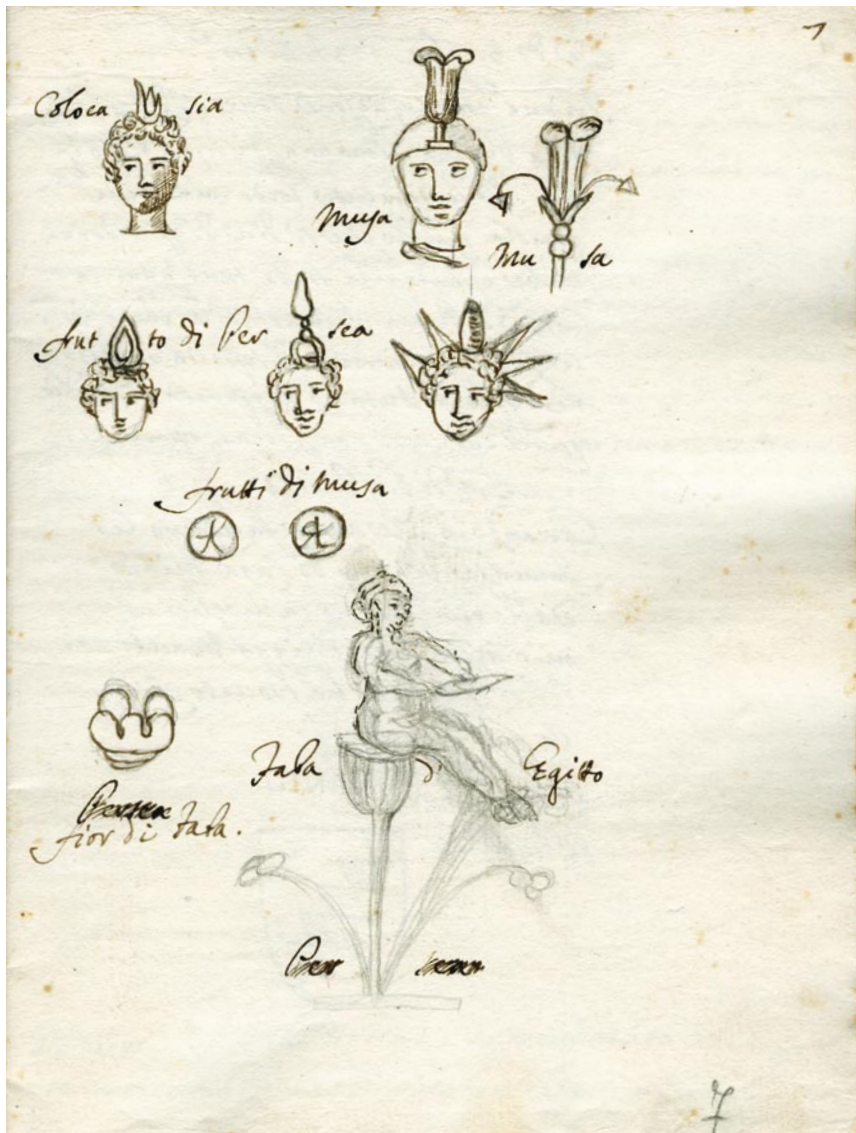 7
Colocasia
Musa
Musa
frutto di Persea
frutti di musa
Faba d' Egitto
fior di Faba.
7